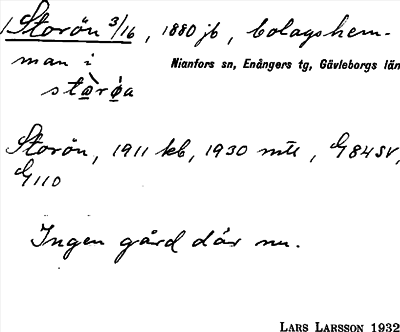 Storön 3/16, 1880 jb, bolagshem-
man i
Nianfors sn, Enångers tg, Gävleborgs län
stærøa
Storön, 1911 kb, 1930 mtl, G84SV,
G110
Ingen gård där nu.
LARS LARSSON 1932